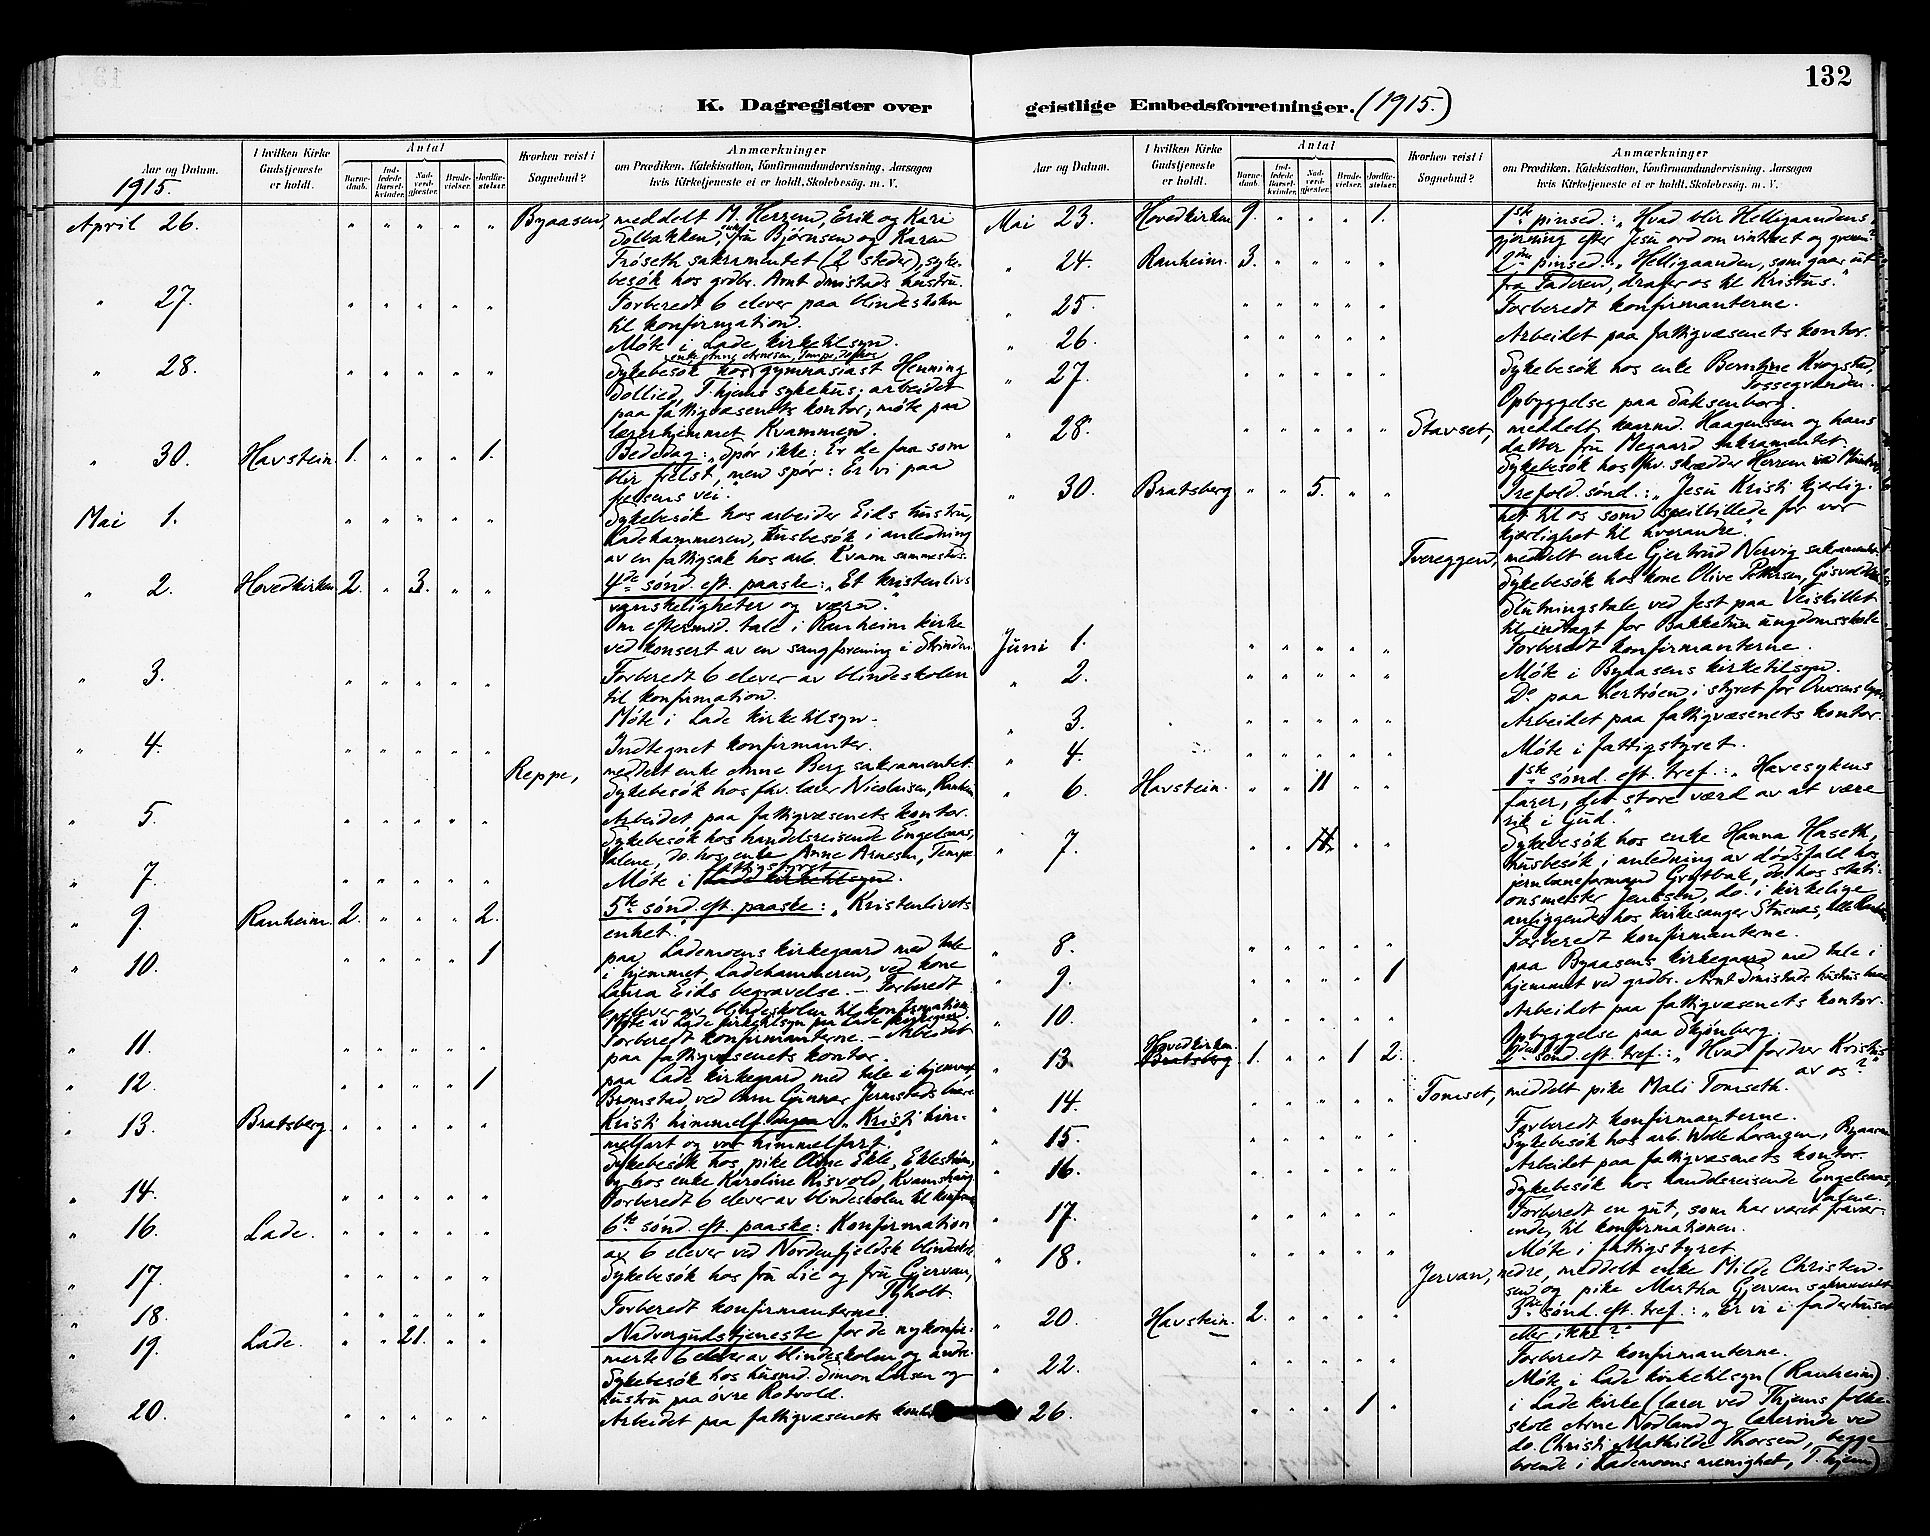 132
K. Dagregister over geistlige Embedsforretninger. (1915.)
Aar og Datum.
1915.
I hvilken Kirke Gudstjeneste er holdt.
Antal
Barnedaab.
Indledede Barselkvinder.
Nadverdgjester.
Brudevielser.
Jordfæstelser.
Hvorhen reist i Sognebud?
Anmærkninger
om Prædiken, Katekisation, Konfirmandundervisning, Aarsagen
hvis Kirketjeneste ei er holdt, Skolebesøg. m. V.
April 26. " " " " " Byaasen, meddelt M. Herrem, Erik og Kari
Solbakken, fru Bjørnsen og Karen
Trøseth sakramentet (2 steder), syke-
besøk hos grdbr. Arnt Smistads hustru.
" 27. " " " " " Forberedt 6 elever paa blindeskolen
til konfirmation.
Møte i Lade kirketilsyn.
" 28. " " " " " Sykebesøk hos gymnasiast Henning
Dollied, T.hjems sykehus; arbeidet
paa fattigvæsenets kontor; møte paa
lærerhjemmet Kvammen.
" 30. Havstein 1. " " " 1. Bededag: "Spør ikke: Er de faa som
blir frelst, men spør: Er vi paa
frelsens vei."
Mai 1. " " " " " Sykebesøk hos arbeider Eids hustru,
Ladehammeren, husbesøk i anledning
av en fattigsak hos arb. Kvam sammesteds.
" 2. Hovedkirken 2. " 3. " " 4de sønd. eft. paaske: "Et kristenlivs
vanskeligheter og værn."
Om eftermid. tale i Ranheim kirke
ved konsert av en sangforening i Strinden.
" 3. " " " " " Forberedt 6 elever av blindeskolen
til konfirmation.
Møte i Lade kirketilsyn.
" 4. " " " " " Indtegnet konfirmanter.
Reppe, meddelt enke Anne Berg sakramentet.
Sykebesøk hos fhv. lærer Nicolaisen, Ranheim
" 5. " " " " " Arbeidet paa fattigvæsenets kontor.
Sykebesøk hos handelsreisende Engelsaas,
Valene, do. hos enke Anne Arnesen, Tempe
" 7. " " " " " Møte i fattigstyret.
" 9. Ranheim. 2. " " " 2. 5te sønd. eft. paaske: "Kristenlivets
enhet."
" 10. " " " " 1 paa Lademoens kirkegaard med tale
i hjemmet, Ladehammeren, ved kone
Laura Eids begravelse. - Forberedt
6 elever av blindeskolen til konfirmation.
Møte av Lade kirketilsyn paa Lade kirkegaard
" 11. " " " " " Forberedt konfirmanterne. - Arbeidet
paa fattigvæsenets kontor.
" 12. " " " " 1 paa Lade kirkegaard med tale i hjemmet,
Bromstad, ved Gunnar Jermstads
" 13. Bratsberg. " " " " " Kristi himmelf. dagen: "Kristi him-
melfart og vor himmelfart."
Sykebesøk hos pike Ekle, Eklestrøen,
og hos enke Karoline Risvold,
" 14. " " " " " Forberedt 6 elever av blindeskolen til konfirm.
" 16. Lade. 6te sønd. eft. paaske: Konfirmation
av 6 elever ved Nordenfjeldsk blindeskole
" 17. " " " " " Sykebesøk hos fru Lie og fru Gjervan,
Tyholt.
" 18. " " " " " Forberedt konfirmanterne.
" 19. Lade. " " 21. " " Nadvergudstjeneste for de nykonfir-
merte 6 elever av blindeskolen og andre.
Sykebesøk hos husmd. Simon Larsen og
hustru paa øvre Rotvold.
" 20. " " " " " Arbeidet paa fattigvæsenets kontor
Aar og Datum.
I hvilken Kirke Gudstjeneste er holdt.
Antal
Barnedaab.
Indledede Barselkvinder.
Nadverdgjester.
Brudevielser.
Jordfæstelser.
Hvorhen reist i Sognebud?
Anmærkninger
om Prædiken, Katekisation, Konfirmandundervisning, Aarsagen
hvis Kirketjeneste ei er holdt, Skolebesøg. m. V.
Mai 23. Hovedkirken 9. " " " 1. 1ste pinsed.: "Hvad blir Helligaandens
gjerning efter Jesu ord om vintræet og grenene?
" 24. Ranheim. 3. " " " " 2den pinsed.: "Helligaanden, som gaar ut
fra Faderen, drager os til Kristus."
" 25. " " " " " Forberedt konfirmanterne.
" 26. " " " " " Arbeidet paa fattigvæsenets kontor.
" 27. " " " " " Sykebesøk hos enke Berntine Krogstad,
Fossegrenden.
Opbyggelse paa Saksenborg.
" 28. " " " " " Stavset, meddelt kaarmd. Haagensen og hans
datter fru Megaard sakramentet.
Sykebesøk hos fhv. skrædder Herrem
" 30. Bratsberg " " 5. " " Trefold. sønd.: "Jesu Kristi kjærlig-
het til os som speilbillede for vor
kjærlighet til hverandre."
Tvereggen, meddelt enke Gjertrud Nervig sakramentet
Sykebesøk hos kone Olive Pettersen,
Slutningstale ved fest paa Veiskillet
til indtægt for Bakketun ungdomsskole
Juni 1. " " " " " Forberedt konfirmanterne.
" 2. " " " " " Møte i Byaasens kirketilsyn.
Do. paa Lertrøen, i styret for
" 3. " " " " " Arbeidet paa fattigvæsenets kontor.
" 4. " " " " " Møte i fattigstyret.
" 6. Havstein. " " 11 " " 1ste sønd. eft. tref.: "Havesykens
farer, det store værd av at være
rik i Gud."
" 7. " " " " Sykebesøk hos enke Hanna Haseth,
husbesøk i anledning av dødsfald hos
jernbaneformand Grøtbak, do. hos stati-
onsmester Jenssen, do. i kirkelige
anliggender hos kirkesanger
" 8. " " " " " Forberedt konfirmanterne.
" 9. " " " " 1 paa Byaasens kirkegaard med tale i
hjemmet ved grdbr. Arnt Smistads hustrus
" 10. " " " " " Arbeidet paa fattigvæsenets kontor.
Opbyggelse paa Skjønberg.
" 13 Hovedkirken. Bratsberg 1. " " 1 2. 2den sønd. eft. tref.: "Hvad fordrer Kristus
av os?"
" 14. " " " " " Tomset, meddelt pike Mali Tomseth.
Forberedt konfirmanterne.
" 15. " " " " " Sykebesøk hos arb. Lorangen, Byaasen
" 16. " " " " " Arbeidet paa fattigvæsenets kontor.
Sykebesøk hos handelsreisende Engelsaas,
Valene.
" 17. " " " " " Forberedt en gut, som har været fravær-
ende, til konfirmationen.
" 18. " " " " " Møte i fattigstyret
Jervan, nedre, meddelt enke Milde Christen-
sen og pike Martha Gjervan sakramentet
" 20. Havstein. 2. " " " " 3die sønd. eft. tref.: "Er vi i faderhuset
eller ikke?"
" 22. " " " " " Forberedt konfirmanterne.
Møte i Lade kirketilsyn (Ranheim)
" 26. " " " 1 " i Lade kirke (lærer ved T.hjems folke-
skole Arne Nodland og lærerinde ved
do. Christi Mathilde Thorsen, begge
boende i Lademoens menighet, T.hjem)